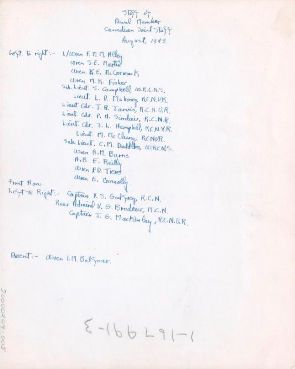 Staff of
Naval Member
Canadian Joint Staff
August, 1943
Left to right:- L/Wren F.M.M. Alley
Wren J.E. Martin
Wren K.E. McCormack
Wren M.K. Fisher
Sub. Lieut. S. Campbell, W.R.C.N.S.
Lieut. L. D. Mahoney, R.C.N.V.R.
Lieut. Cdr. J. R. R.C.N.V.R.
Lieut. Cdr. P. A. Sinclair, R.C.N.R.
Lieut. Cdr. J. L. Hemphill, R.C.N.V.R.
Lieut. M. McClung, R.C.N.V.R.
Sub. Lieut. C.M. W.R.C.N.S.
Wren A.M. Burns
A.B. E. Reilly
Wren
Wren E. Connolly
Front Row
Left to Right:- Captain H.S. R.C.N.
Rear Admiral V. G. Brodeur, R.C.N.
Captain J. G. Mackinlay, R.C.N.V.R.
Absent:- Wren L.M.
1-16791-3